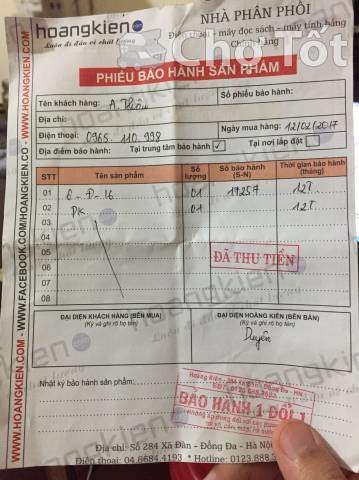 hoangkien.com
Luôn đi đầu về chất lượng
NHÀ PHÂN PHỐI
Điện thoại - máy đọc sách - máy tính bảng
Chính hãng
Chợ Tốt
PHIẾU BẢO HÀNH SẢN PHẨM
Tên khách hàng: A. Thân
Số phiếu bảo hành:
Địa chỉ:
Điện thoại: 0965. 110. 998
Ngày mua hàng: 12/02/2017
Địa điểm bảo hành: Tại trung tâm bảo hành ☑ Tại nơi lắp đặt:
STT Tên sản phẩm Số lượng Số bảo hành (S-N) Thời gian bảo hành (tháng)
01 6 - Đ - 16 01 19257 12T
02 PK 01 12T
03
04
05
06
07
08
ĐÃ THU TIỀN
ĐẠI DIỆN KHÁCH HÀNG (BÊN MUA) ĐẠI DIỆN HOÀNG KIÊN (BÊN BÁN)
(Ký và ghi rõ họ tên) (Ký và ghi rõ họ tên)
Duyên
Nhật ký bảo hành sản phẩm:
BẢO HÀNH 1 ĐỔI 1
Địa chỉ: Số 284 Xã Đàn - Đống Đa - Hà Nội
Điện thoại: 04.6684.4193 * Hotline: 0123.888.3
WWW.FACEBOOK.COM/HOANGKIEN.CO - WWW.HOANGKIEN.COM